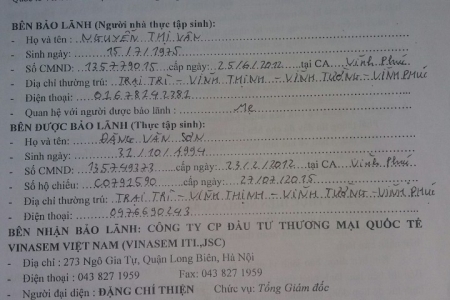 BÊN BẢO LÃNH (Người nhà thực tập sinh):
- Họ và tên: NGUYỄN THỊ VÂN
- Sinh ngày: 15/7/1975
- Số CMND: 135779015 cấp ngày: 25/6/2012 tại CA Vĩnh Phú
- Địa chỉ thường trú: TRẠI TRÌ - VĨNH THỊNH - VĨNH TƯỜNG - VĨNH PHÚ
- Điện thoại: 01678242782
- Quan hệ với người được bảo lãnh: Mẹ
BÊN ĐƯỢC BẢO LÃNH (Thực tập sinh):
- Họ và tên: ĐẶNG VĂN SƠN
- Sinh ngày: 31/10/1994
- Số CMND: 135749373 cấp ngày: 23/2/2012 tại CA Vĩnh Phú
- Số hộ chiếu: C0792590 cấp ngày: 27/07/2015
- Địa chỉ thường trú: TRẠI TRÌ - VĨNH THỊNH - VĨNH TƯỜNG - VĨNH PHÚ
- Điện thoại: 0976690243
BÊN NHẬN BẢO LÃNH: CÔNG TY CP ĐẦU TƯ THƯƠNG MẠI QUỐC TẾ
VINASEM VIỆT NAM (VINASEM ITI.,JSC)
- Địa chỉ : 273 Ngô Gia Tự, Quận Long Biên, Hà Nội
- Điện thoại : 043 827 1959 Fax: 043 827 1959
- Người đại diện : ĐẶNG CHÍ THIỆN Chức vụ: Tổng Giám đốc